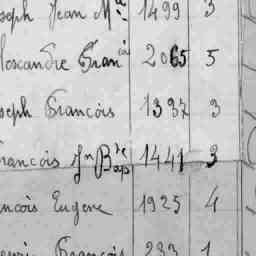 oseph Jean M.ie 1499 3
lexandre Fran.çois 2065 5
seph François 1337 3
rancois Jn Bapte 1441 3
ncois Eugene 1925 4
François 233 1